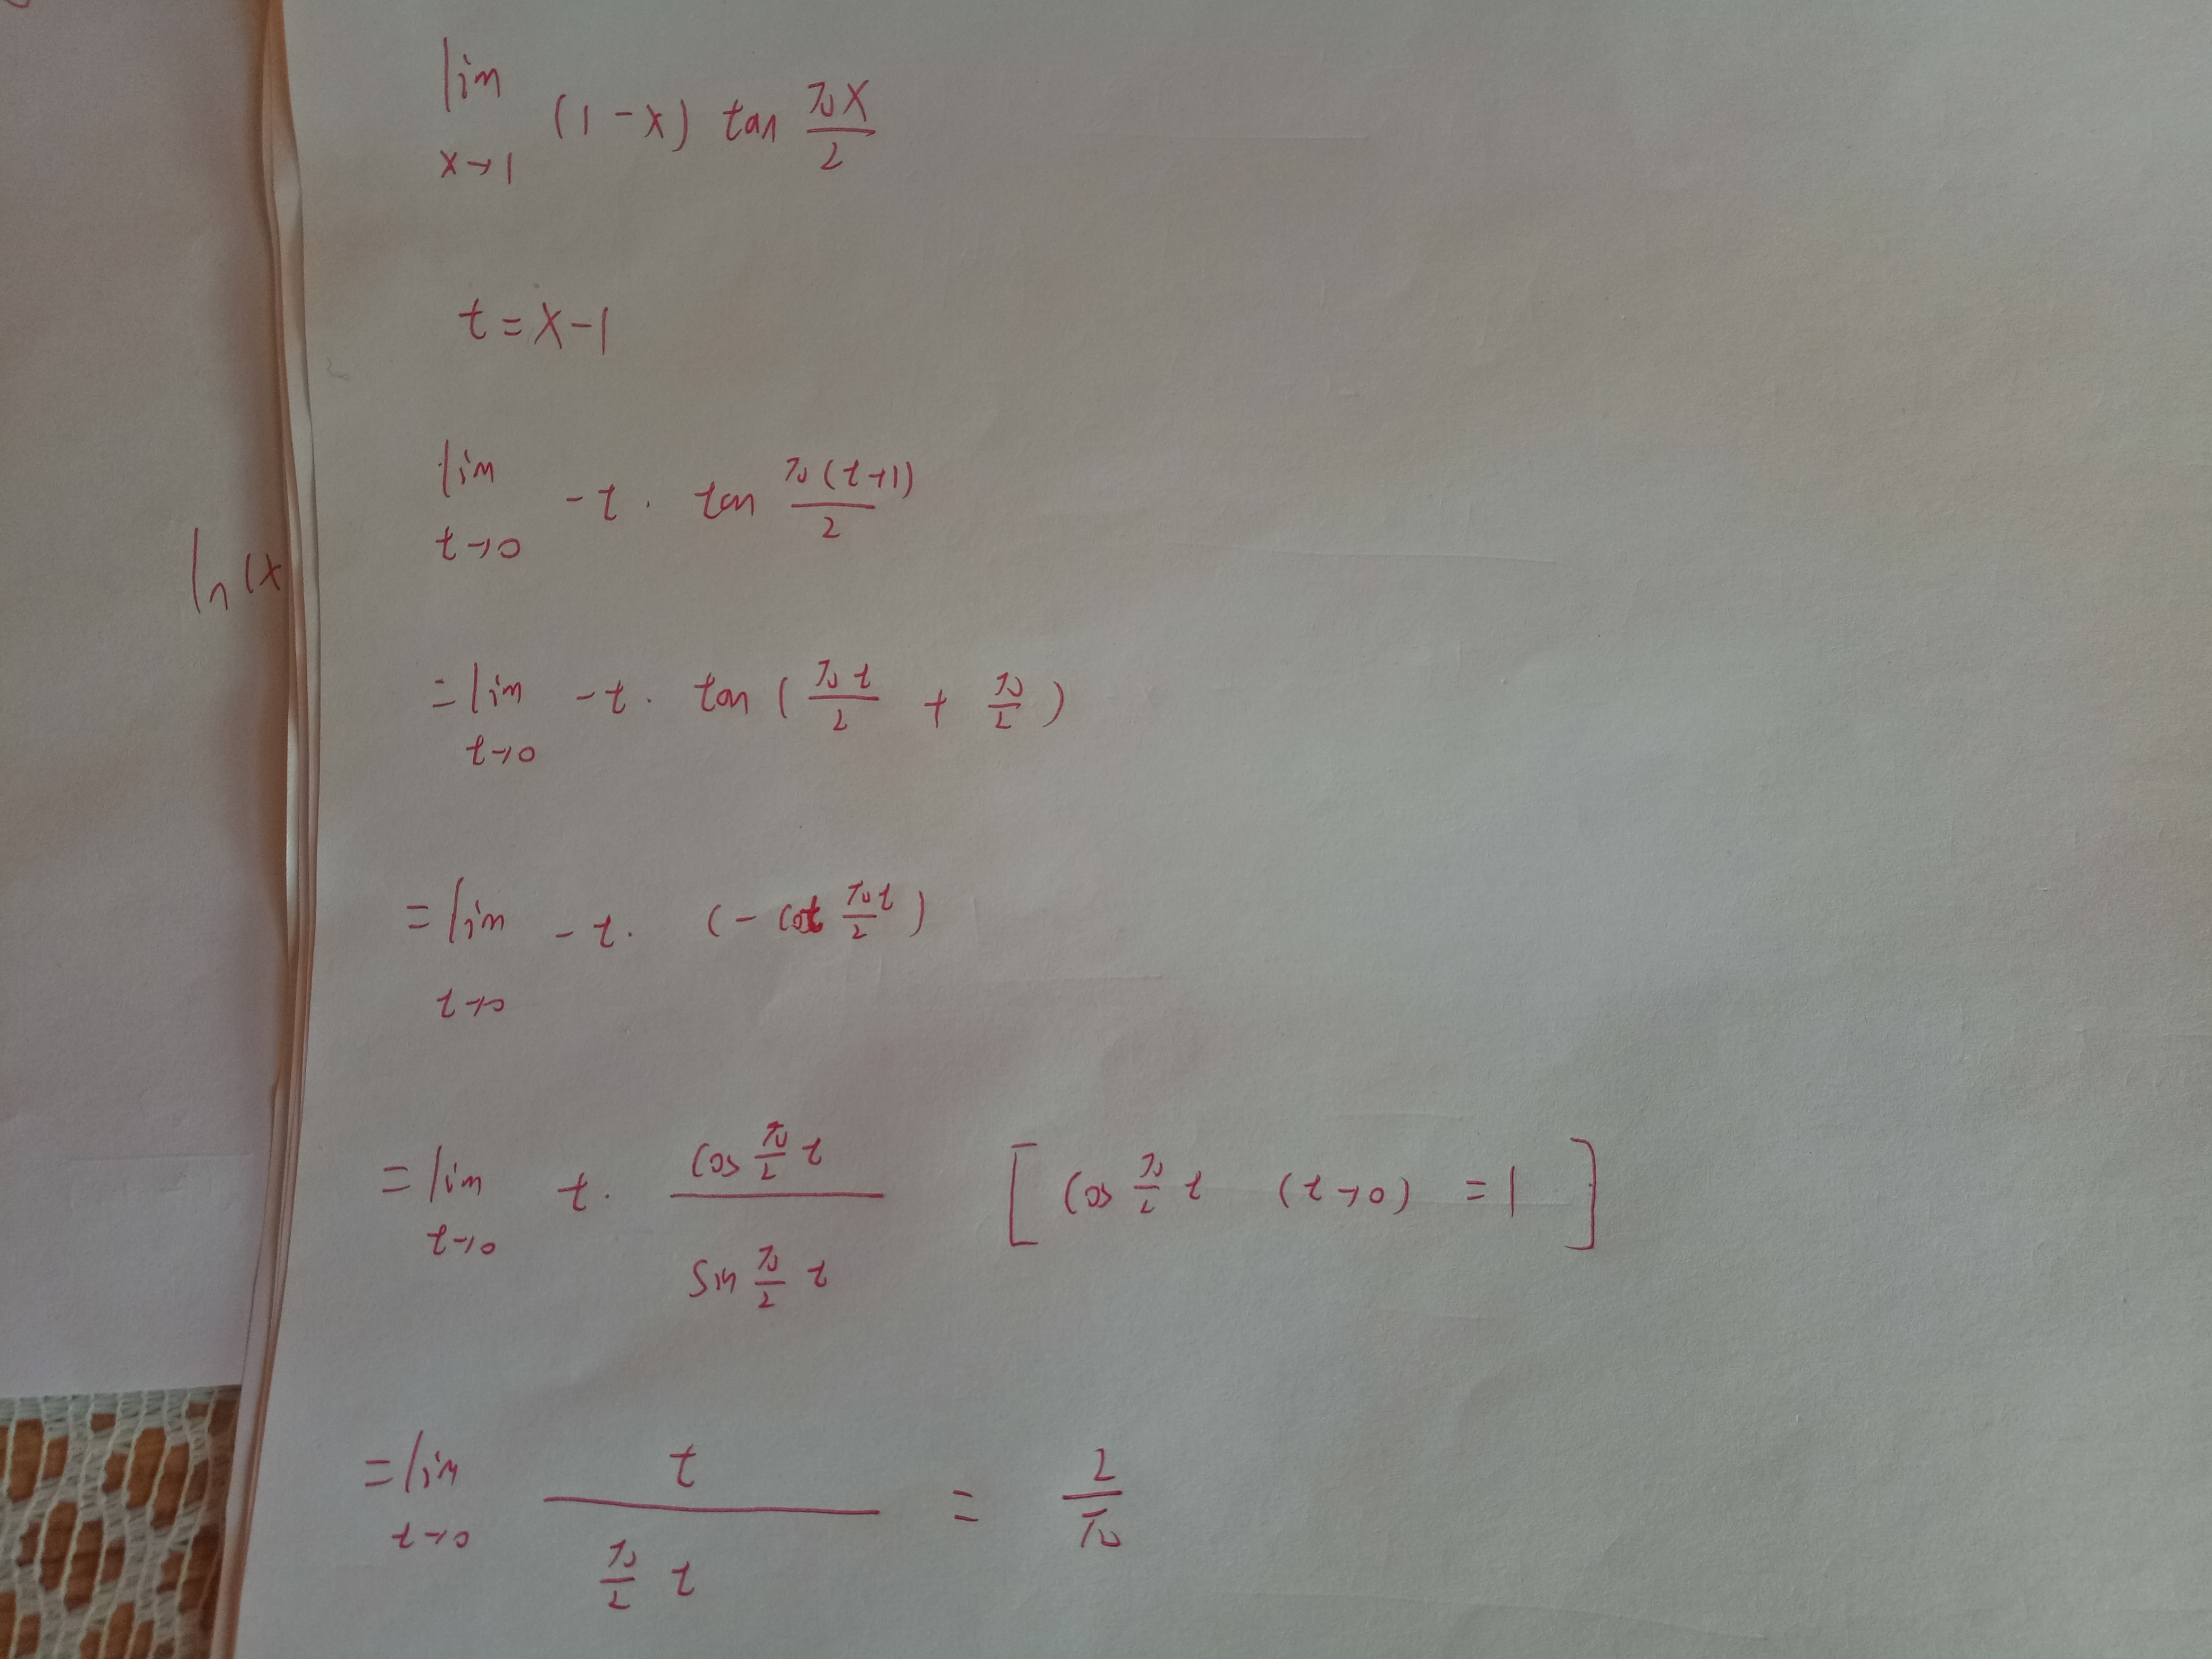 lim x→1 (1-x) tan πx/2
t=x-1
lim t→0 -t · tan π(t+1)/2
ln(x
=lim t→0 -t · tan(πt/2 + π/2)
=lim t→0 -t · (-cot πt/2)
=lim t→0 t · cos π/2 t / sin π/2 t [cos π/2 t (t→0) =1]
=lim t→0 t / π/2 t = 2/π